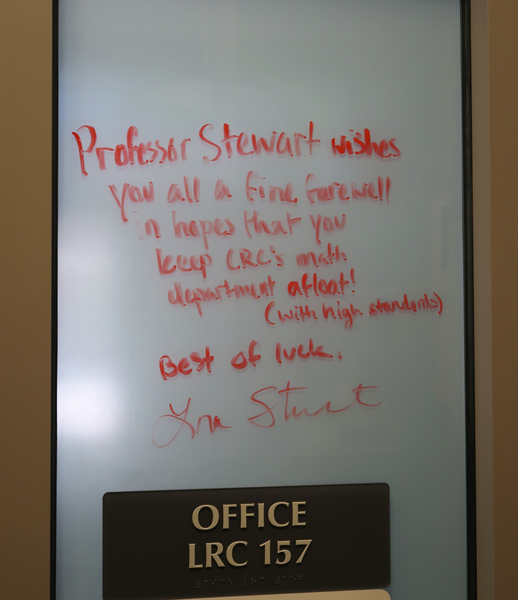 Professor Stewart wishes
you all a fine farewell
in hopes that you
keep CRC's math
department afloat!
(with high standards)
Best of luck.
OFFICE
LRC 157